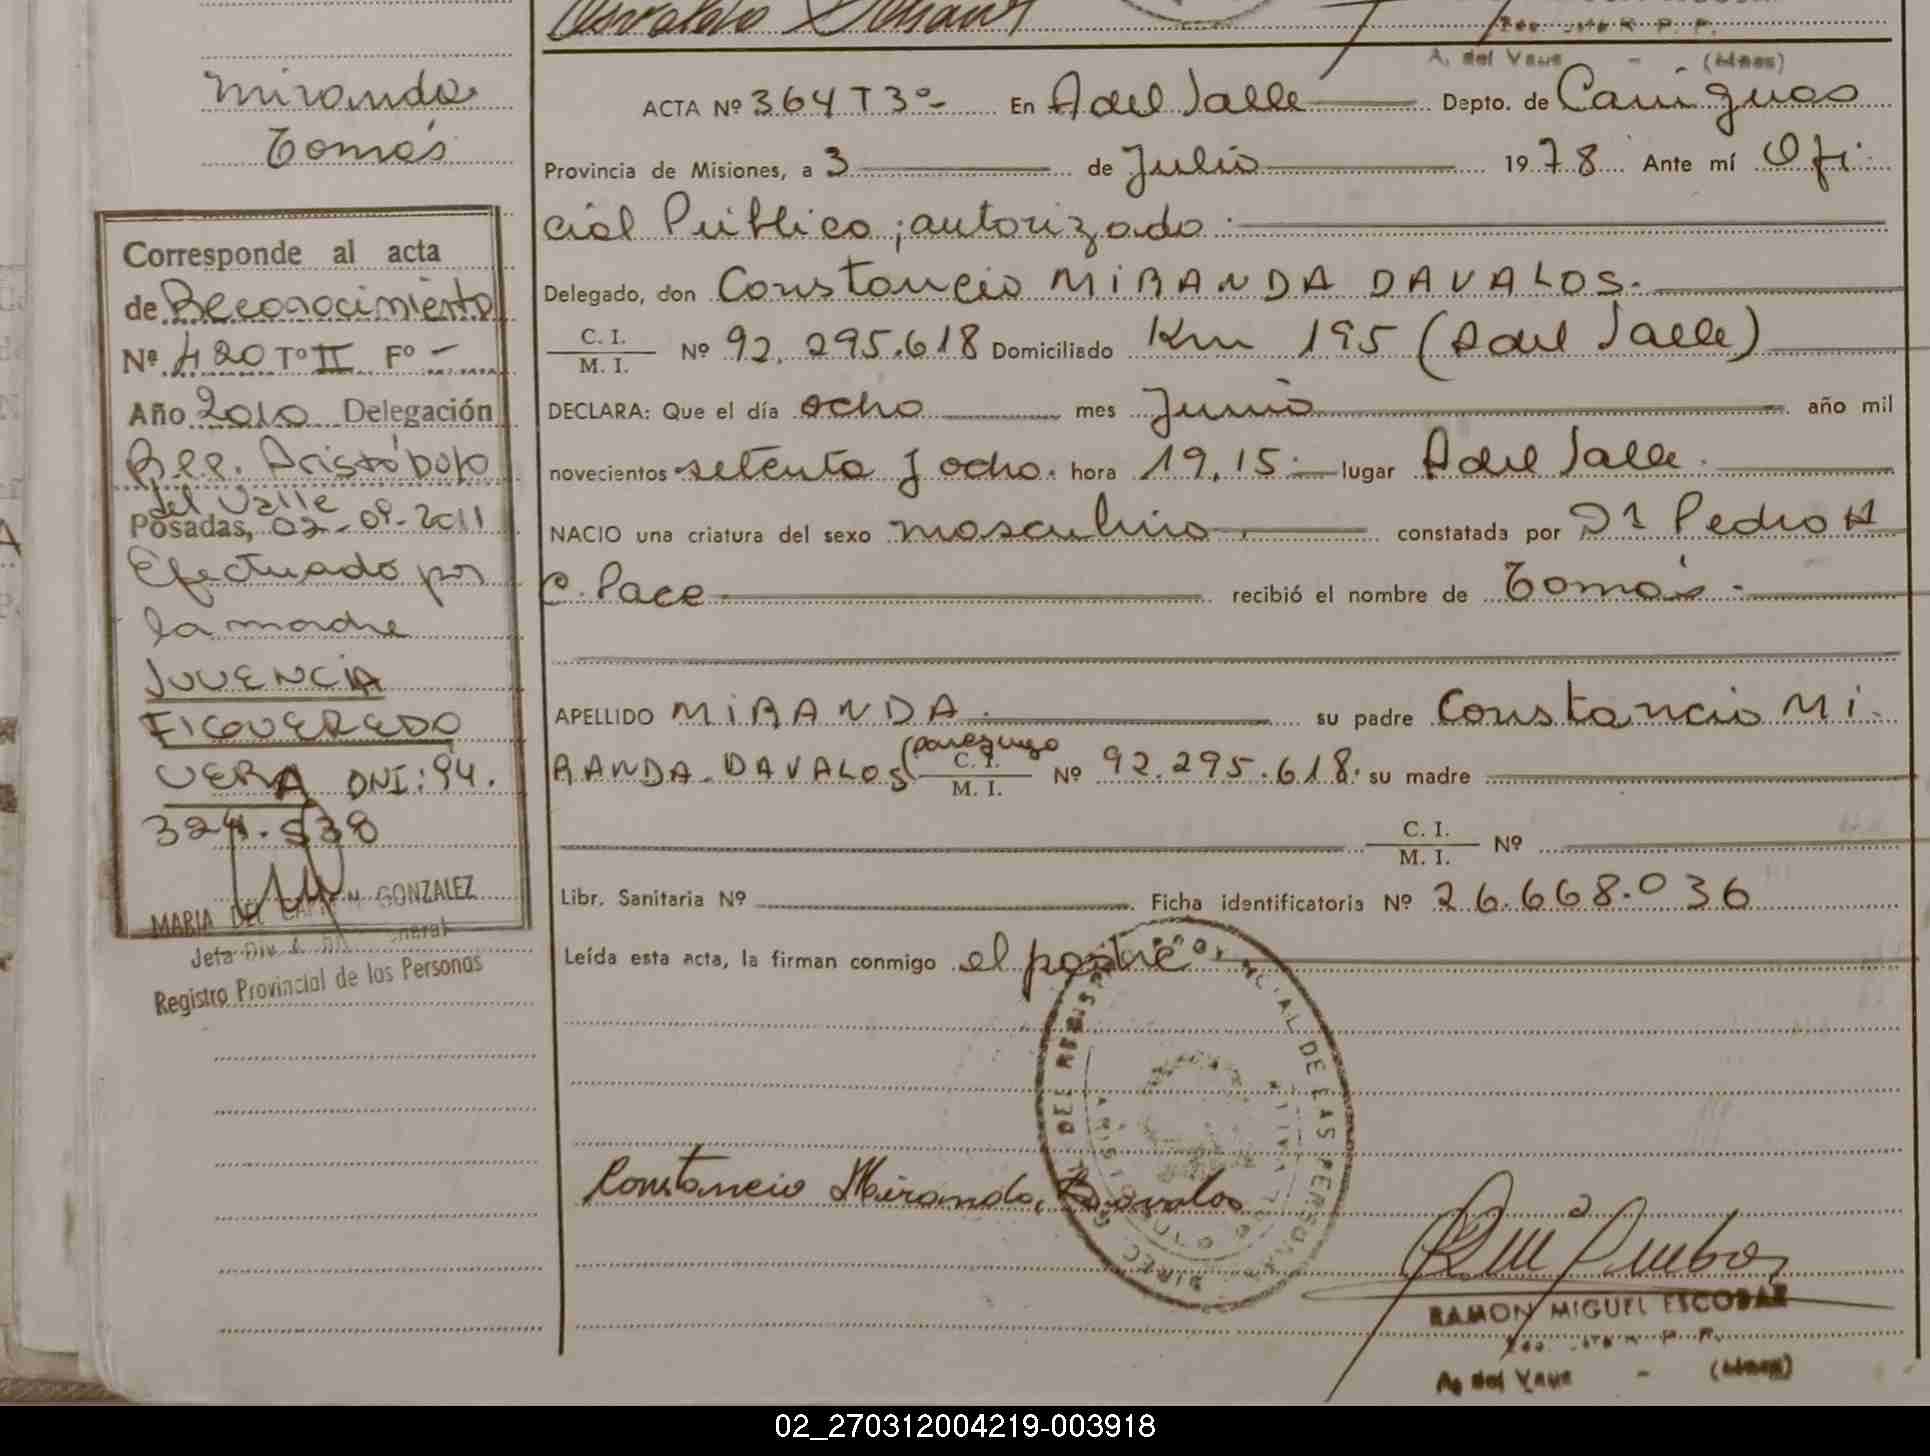 Miranda
Tomás
Corresponde al acta
de Reconocimiento
Nº 420 Tº II Fº -
Año 2010 Delegación
R.P.P. Aristóbulo
del Valle
Posadas, 02-09-2011
Efectuado por
la madre
JUVENCIA
FIGUEREDO
VERA DNI: 94.
324.538
MARIA DEL CARMEN GONZALEZ
Jefa Div.
Registro Provincial de las Personas
A. del Valle - (Mnes)
ACTA Nº 364 T3º- En A del Valle Depto. de Cainguas
Provincia de Misiones, a 3 de Julio 1978 Ante mí Ofi
cial Público; autorizado
Delegado, don Constancio MIRANDA DAVALOS.
C. I.
M. I. Nº 92.295.618 Domiciliado Km 195 (A del Valle)
DECLARA: Que el día ocho mes Junio año mil
novecientos setenta y ocho. hora 19,15 lugar A del Valle.
NACIO una criatura del sexo masculino constatada por Dr Pedro A
C. Pace recibió el nombre de Tomás.
APELLIDO MIRANDA. su padre Constancio MI-
RANDA DAVALOS (paraguayo C. I.
M. I. Nº 92.295.618. su madre
C. I.
M. I. Nº
Libr. Sanitaria Nº Ficha identificatoria Nº 26.668.036
Leída esta acta, la firman conmigo el padre
DIREC. GRAL. DEL REGISTRO PROVINCIAL DE LAS PERSONAS
Constancio Miranda, Davalos
RAMON MIGUEL ESCOBAR
A. del Valle - (Mnes)
02_270312004219-003918